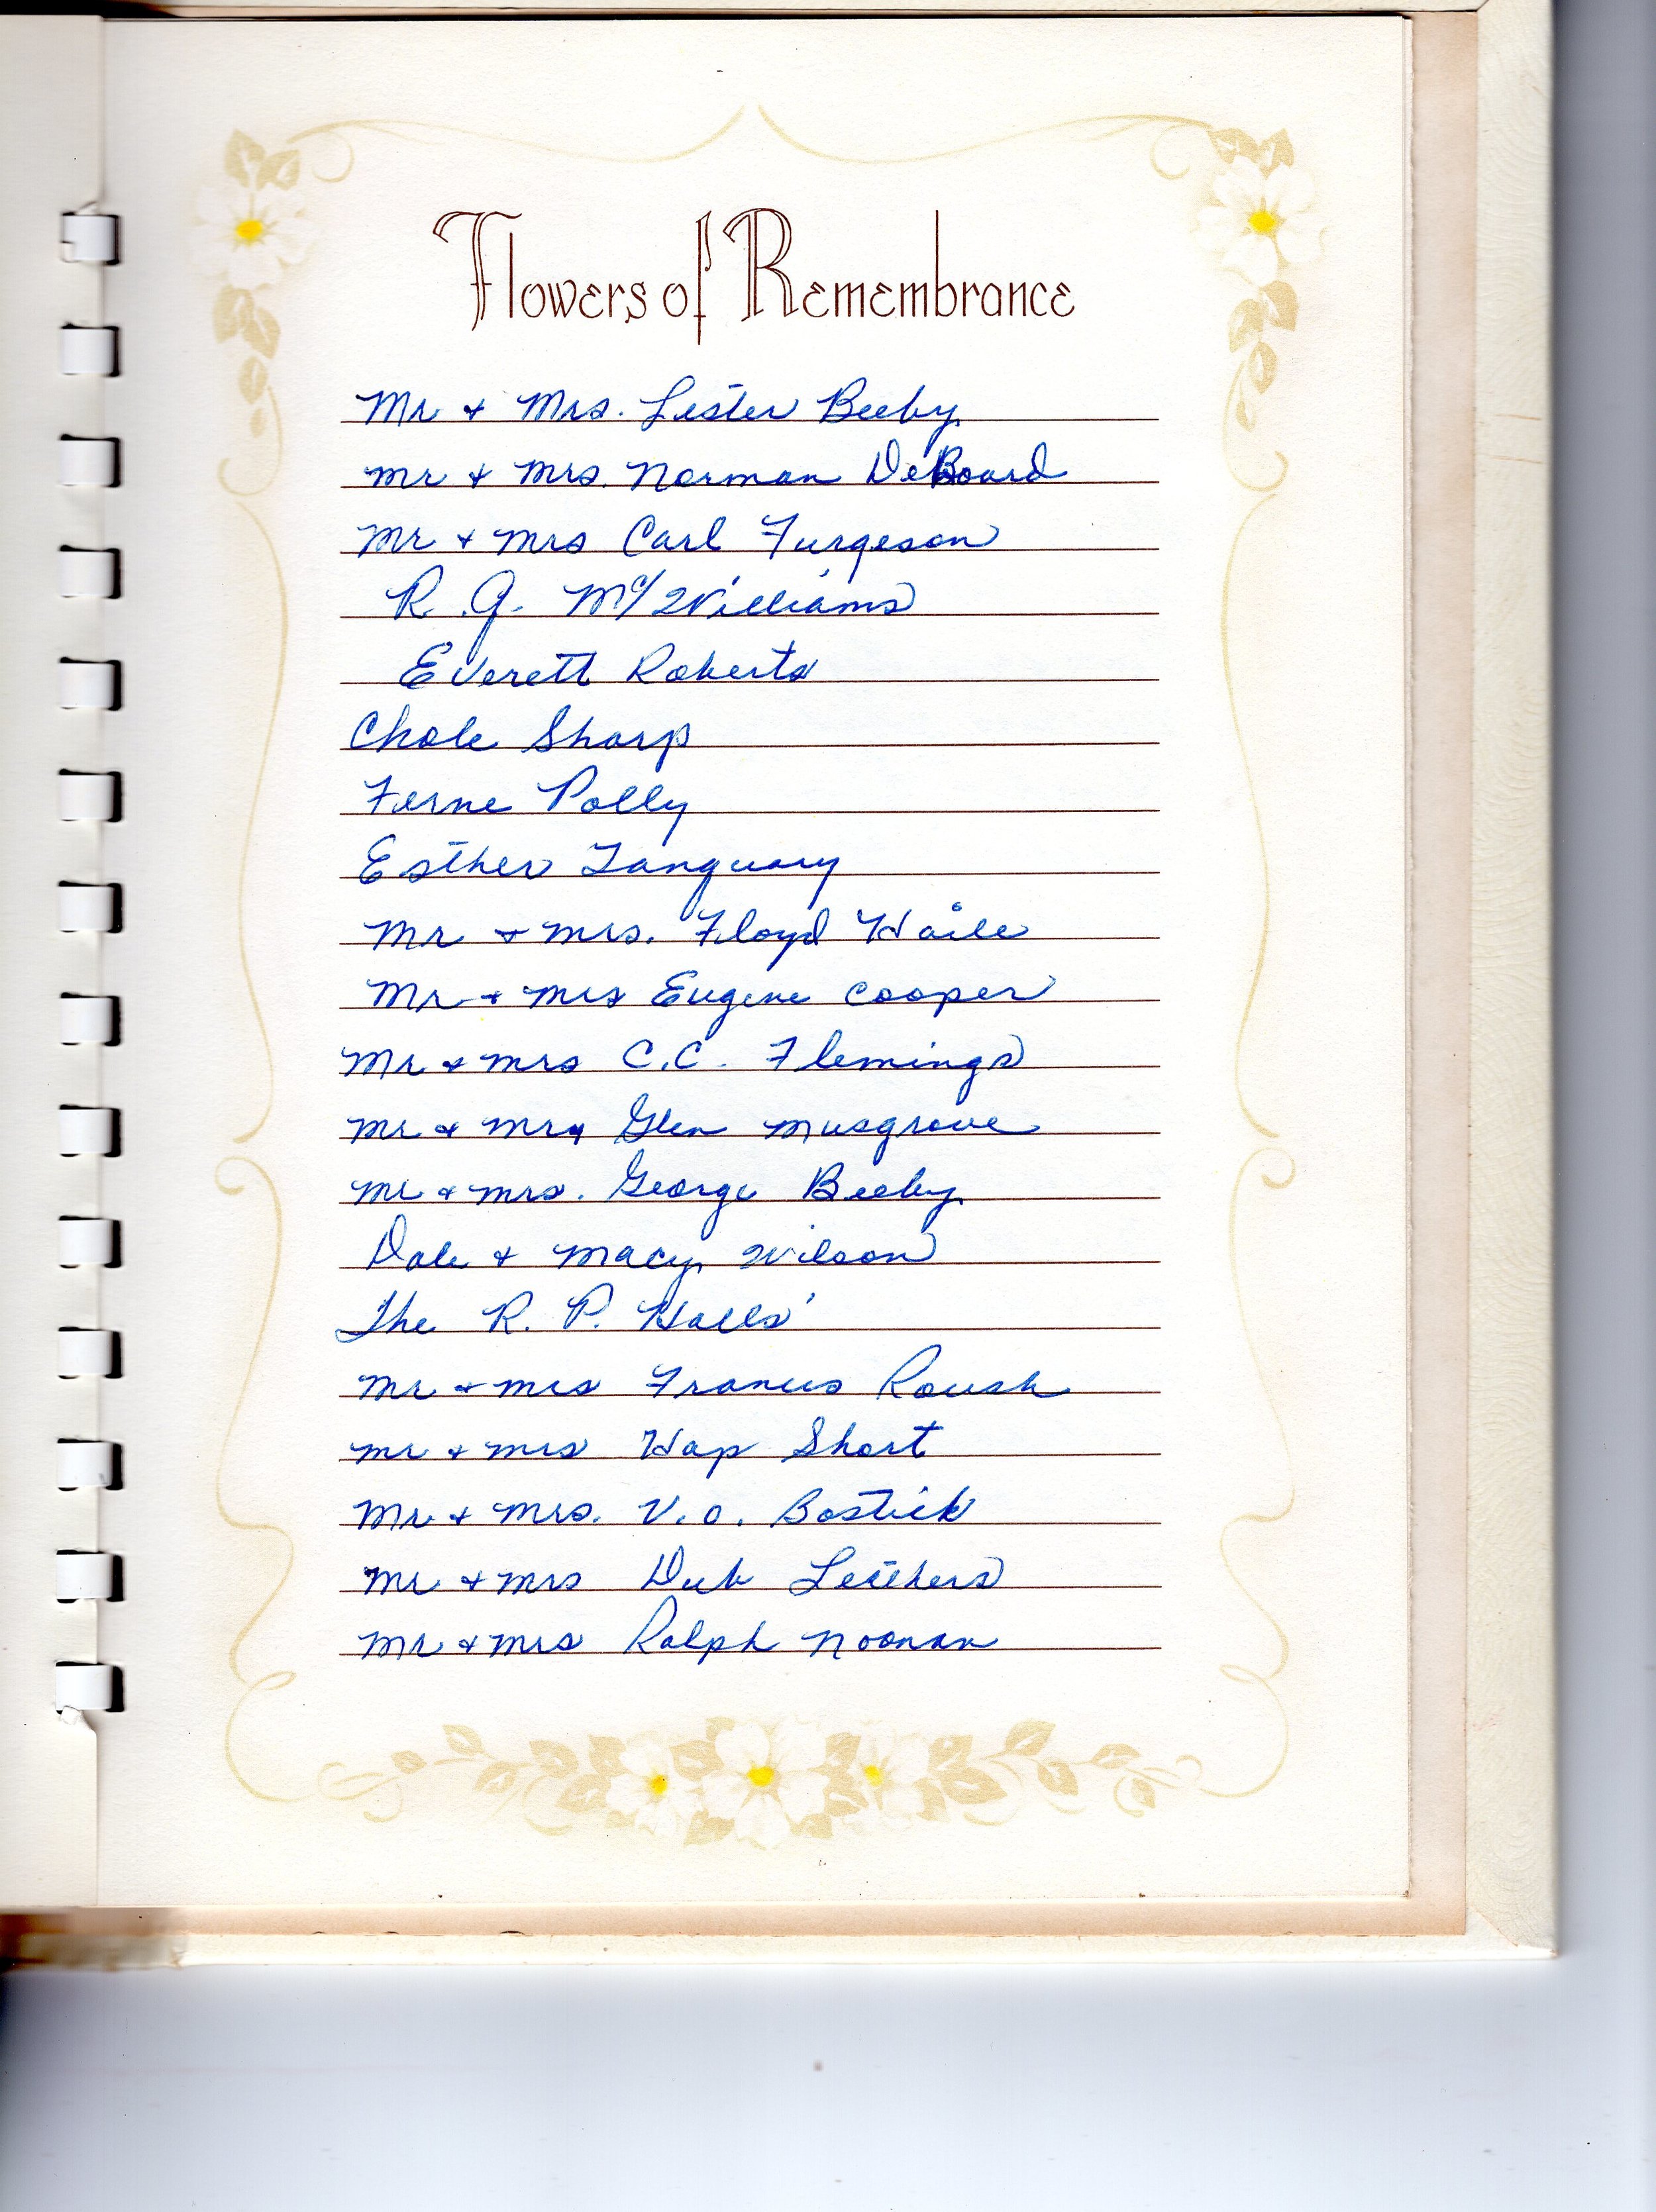 Flowers of Remembrance
Mr & Mrs. Lester Beeby
Mr & Mrs. Norman DeBoard
Mr & Mrs Carl Furgeson
R. G. McWilliams
Everett Roberts
Chole Sharp
Ferne Polly
Esther Tanquary
Mr & Mrs. Floyd Haile
Mr & Mrs Eugene Cooper
Mr & Mrs C.C. Flemings
Mr & Mrs Glen Musgrove
Mr & Mrs. George Beeby
Dale & Macy Wilson
The R. P. Halls'
Mr & Mrs Francis Roush
Mr & Mrs Hap Short
Mr & Mrs. V.O. Bostick
Mr & Mrs Dub Leithers
Mr & Mrs Ralph Noonan